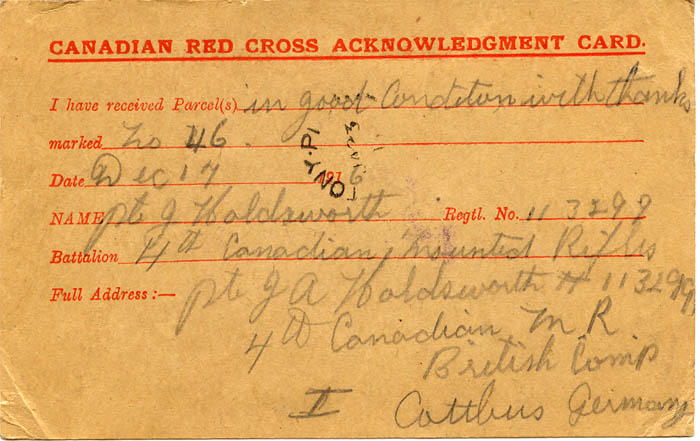 CANADIAN RED CROSS ACKNOWLEDGMENT CARD.
I have received Parcel(s) in good Condition with thanks
marked No 46.
Date Dec 17 1916
NAME pte J Holdsworth Regtl. No. 113299
Battalion 4th Canadian Mounted Rifles
Full Address:— pte J A Holdsworth # 113299
4th Canadian M R
British Comp
II Cottbus Germany
ONY-PI